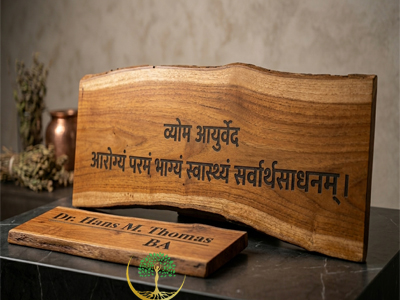 व्योम आयुर्वेद
आरोग्यं परमं भाग्यं स्वास्थ्यं सर्वार्थसाधनम् ।
Dr. Hans M. Thomas
BA